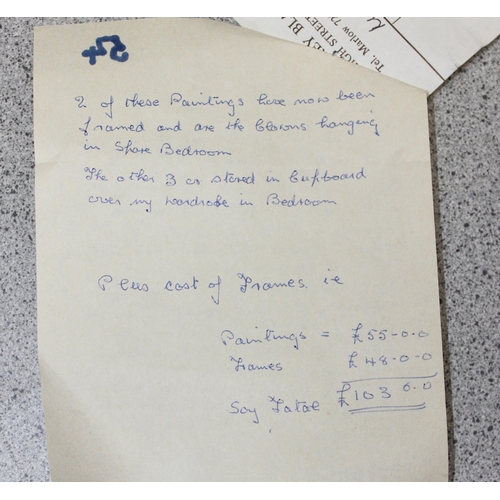 54
2 of these Paintings have now been
framed and are the Clowns hanging
in Spare Bedroom
The other 3 are stored in Cupboard
over my wardrobe in Bedroom
Plus cost of Frames. ie
Paintings = £55-0.0
Frames £48.0-0
Say Total £103 0.0
EY BL
IGH STREET
Tel. Marlow 7